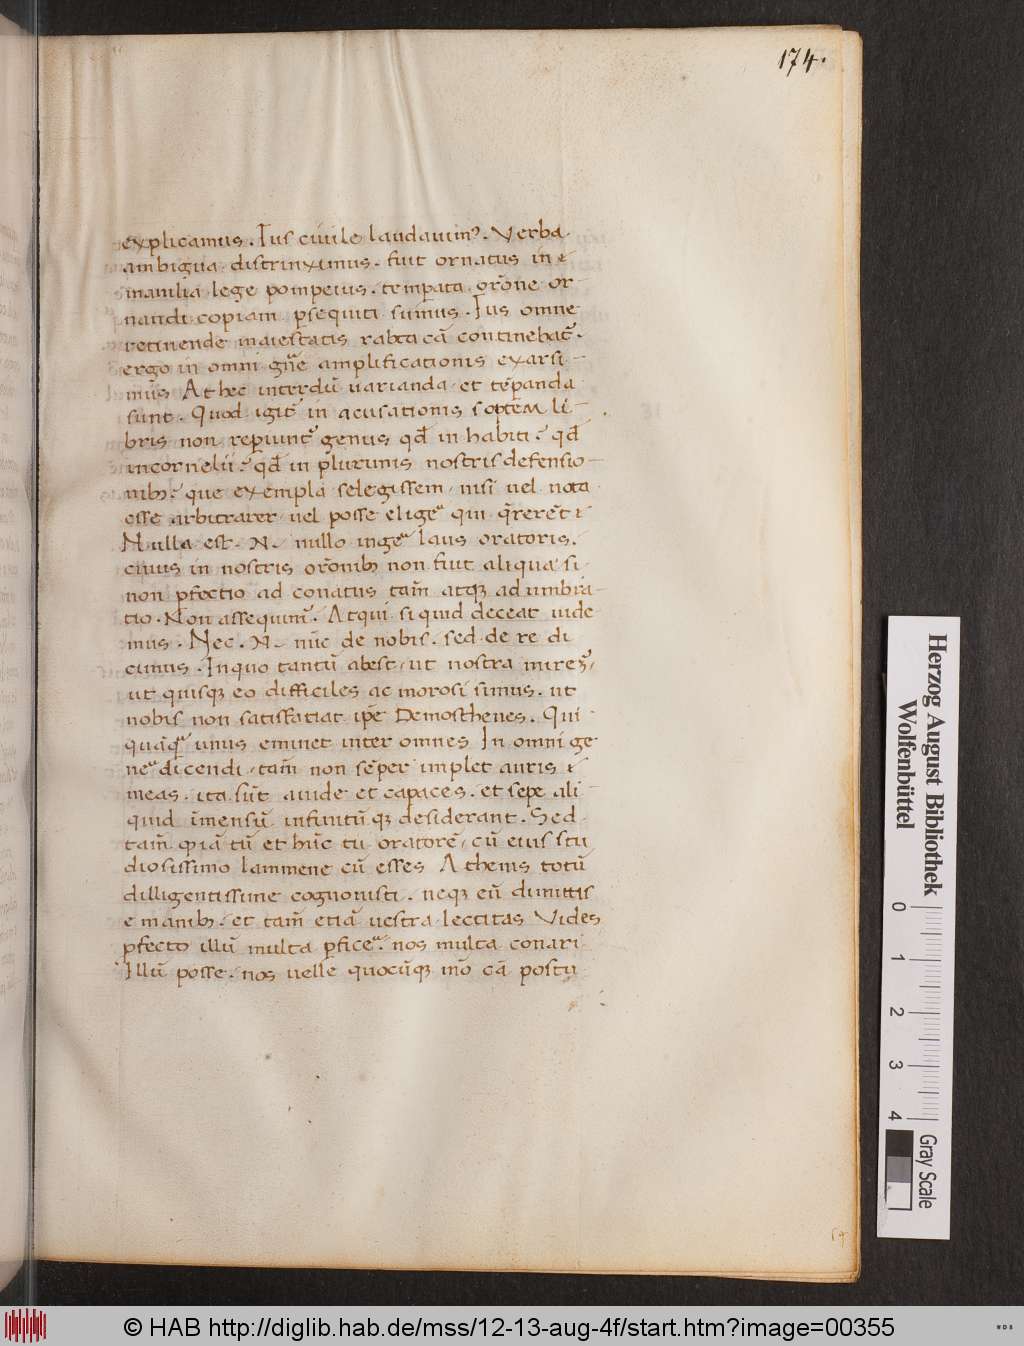 174.
explicamus. Ius ciuile laudauimꝰ. Verba
ambigua distrinximus. fuit ornatus in
manilia lege pompeius. temꝑata or̃one or-
nandi copiam ꝑsequuti sumus. Ius omne
retinende maiestatis rabta cã continebat̃.
ergo in omni gñe amplificationis exarsi-
mus At hec interdũ uarianda et tẽperanda
sunt. Quod igit̃ in acusationis soptem li-
bris non reperiunt̃ genus qđ in habiti? qđ
in cornelii? qđ in plurimis nostris defensio-
nibꝫ? que exempla selegissem, nisi uel nota
esse arbitrarer uel posse elige qui q̃reret
Nulla est .N. nullo in gen̄e laus oratoris.
cuius in nostris or̃onibꝫ non fuit aliqua si
non ꝑfectio ad conatus tam̃ atqꝫ adumbra-
tio. Non assequim̃. Atqui si quid deceat uide
mus. Nec .N. nũc de nobis. sed de re di
cimus. In quo tantũ abest, ut nostra
ut quisqꝫ eo difficiles ac morosi simus. ut
nobis non satisfatiat ip̃e Demosthenes. Qui
unus eminet inter omnes In omni ge
nẽ dicendi, tam̃ non sẽper implet auris
meas. ita sũt auide et capaces. et sepe ali-
quid ĩmensũ infinitũqꝫ desiderant. Sed
tam̃ qm̃ tũ et hũc tu oratorẽ, cũ eius stu
diosissimo lammene cũ esses Athenis totũ
dilligentissime cognouisti. neqꝫ eũ dimittis
e manibꝫ. et tam̃ etiã uestra lectitas Vides
ꝑfecto illũ multa ꝑfice. nos multa conari
Illũ posse. nos uelle quocũqꝫ mõ cã postu
Herzog August Bibliothek
Wolfenbüttel
0 1 2 3 4
Gray Scale
© HAB http://diglib.hab.de/mss/12-13-aug-4f/start.htm?image=00355